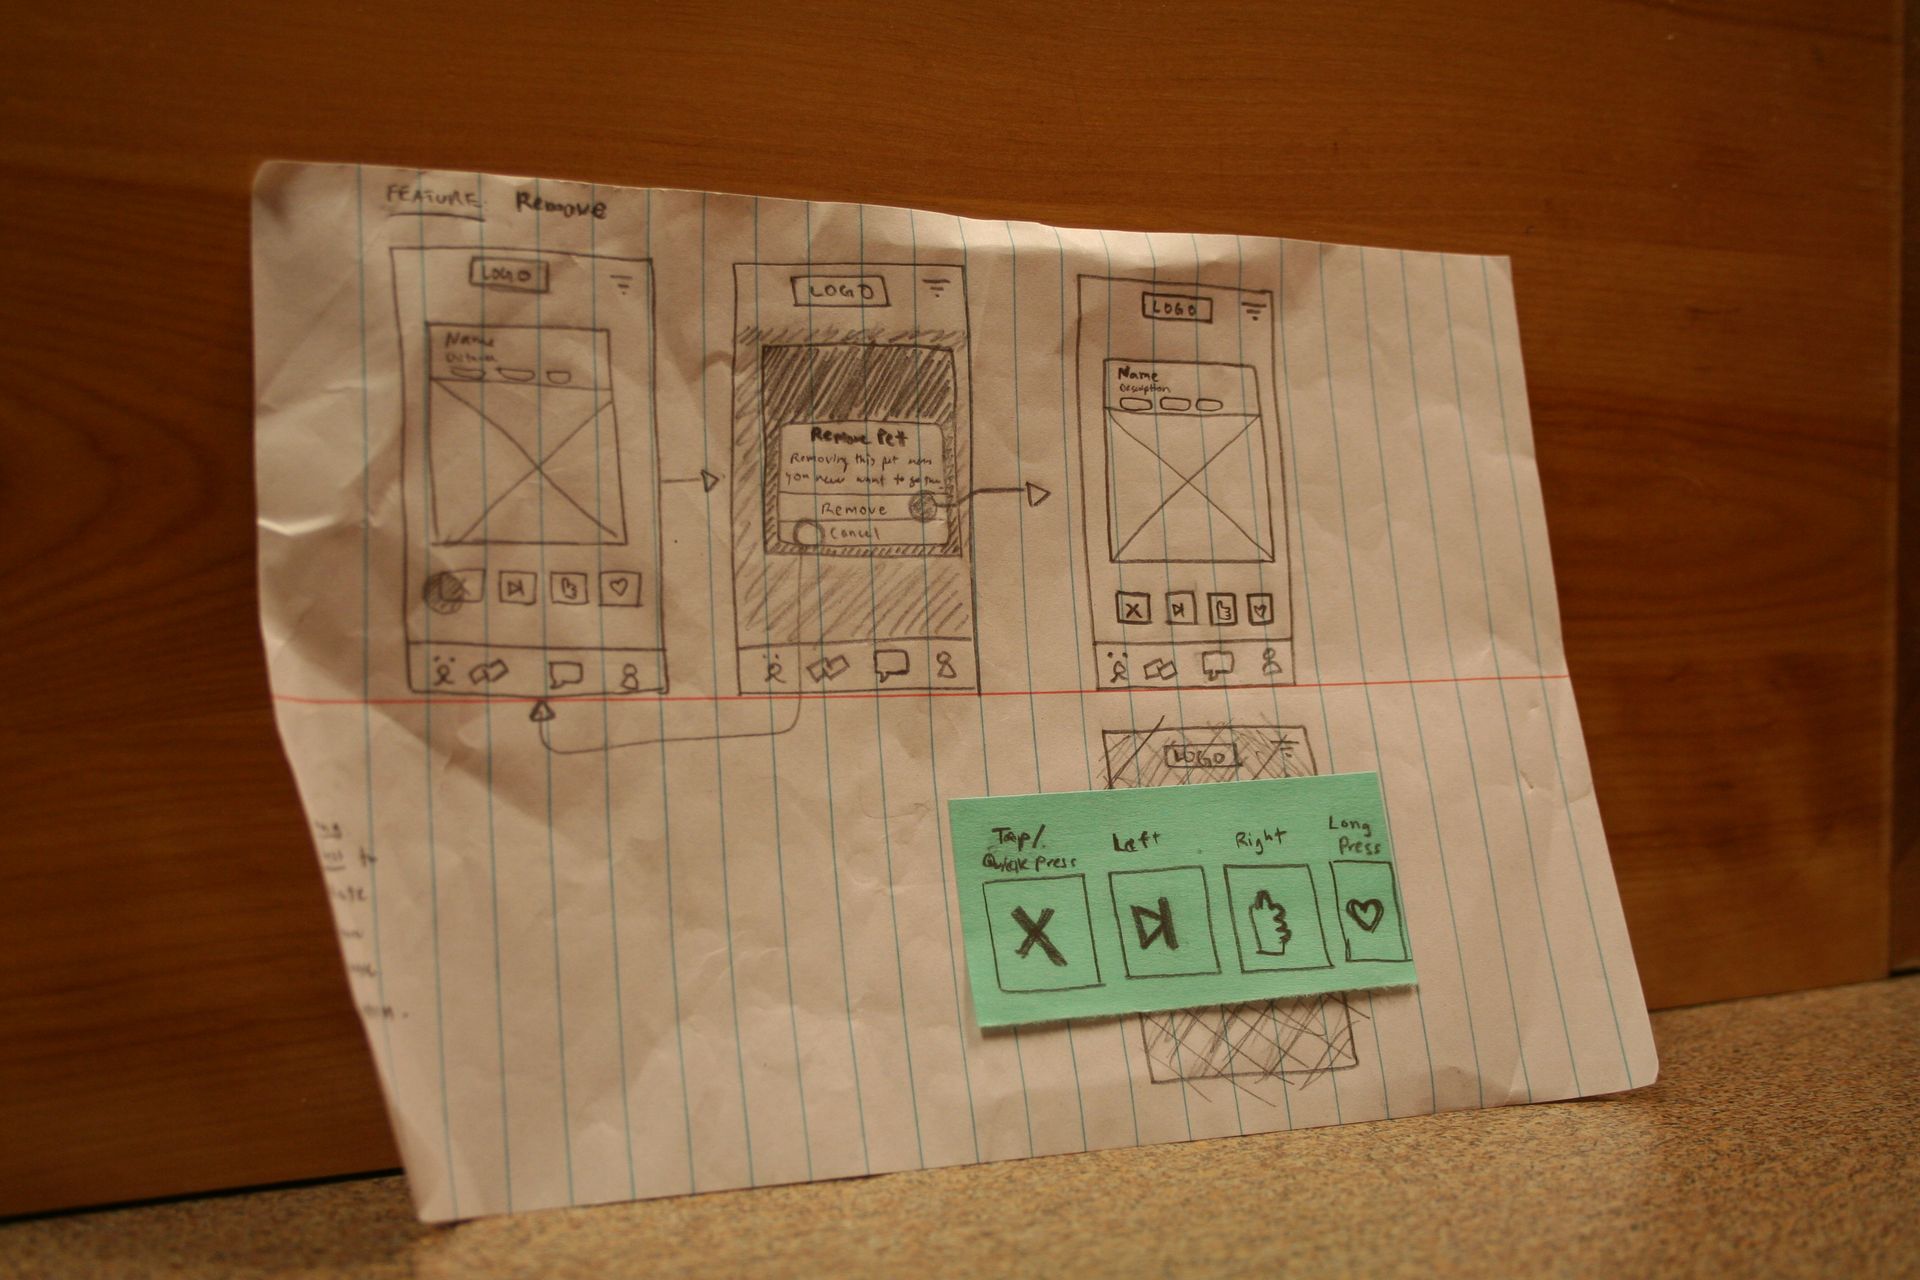 FEATURE Remove
LOGO
Name
LOGO
Remove Pet
Removing this pet
you never want to
Remove
Cancel
LOGO
Name
Description
LOGO
Tap/
Quick Press
Left
Right
Long
Press